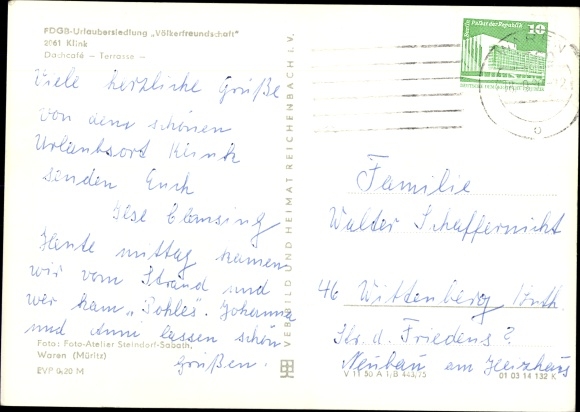 FDGB-Urlaubersiedlung „Völkerfreundschaft"
2061 Klink
Dachcafé – Terrasse –
Viele herzliche Grüße
von dem schönen
Urlaubsort Klink
senden Euch
Ilse Clemsing
Heute mittag kamen
wir vom Strand und
wer kam „Pohles". Johanna
und Anni lassen schön
grüßen.
Foto: Foto-Atelier Steindorf-Sabath,
Waren (Müritz)
EVP 0,20 M
VEB BILD UND HEIMAT REICHENBACH i. V.
Berlin, Palast der Republik 10
Familie
Walter Schaffernicht
46 Wittenberg
Str. d. Friedens ?
Neubau am
V 11 50 A 1/B 443/75 01 03 14 132 K